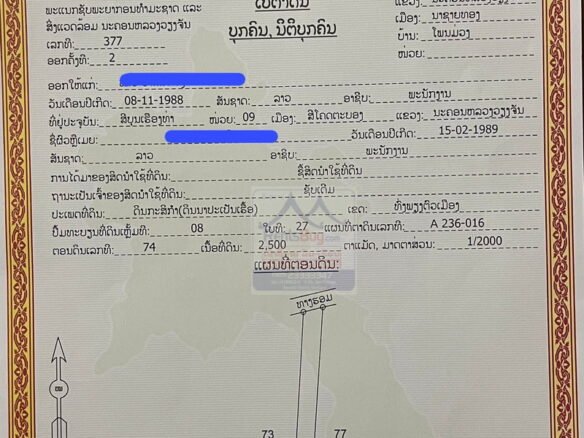 ພະແນກຊັບພະຍາກອນທຳມະຊາດ ແລະ
ສິ່ງແວດລ້ອມ ນະຄອນຫລວງວຽງຈັນ
ໃບຕາດິນ
ບຸກຄົນ, ນິຕິບຸກຄົນ
ເມືອງ: ນາຊາຍທອງ
ບ້ານ: ໂພນມ່ວງ
ໜ່ວຍ:
ເລກທີ: 377
ອອກຄັ້ງທີ: 2
ອອກໃຫ້ແກ່:
ວັນເດືອນປີເກີດ: 08-11-1988 ສັນຊາດ: ລາວ ອາຊີບ: ພະນັກງານ
ທີ່ຢູ່ປະຈຸບັນ: ສີບຸນເຮືອງທ່າ ໜ່ວຍ: 09 ເມືອງ: ສີໂຄດຕະບອງ ແຂວງ: ນະຄອນຫລວງວຽງຈັນ
ຊື່ຜົວຫຼືເມຍ: ວັນເດືອນປີເກີດ: 15-02-1989
ສັນຊາດ: ລາວ ອາຊີບ: ພະນັກງານ
ການໄດ້ມາຂອງສິດນຳໃຊ້ທີ່ດິນ: ຊື້ສິດນຳໃຊ້ທີ່ດິນ
ຖານະເປັນເຈົ້າຂອງສິດນຳໃຊ້ທີ່ດິນ: ຊັບເດີມ
ປະເພດທີ່ດິນ: ດິນກະສິກຳ(ດິນນາປະເປັນເຮື້ອ) ເຂດ: ທົ່ງພຽງຕົວເມືອງ
ປຶ້ມທະບຽນທີ່ດິນເຫຼັ້ມທີ: 08 ໃບທີ: 27 ແຜນທີ່ຕາດິນເລກທີ: A 236-016
ຕອນດິນເລກທີ: 74 ເນື້ອທີ່ດິນ: 2,500 ຕາແມັດ, ມາດຕາສ່ວນ: 1/2000
ແຜນທີ່ຕອນດິນ:
ທາງຮອມ
73 77